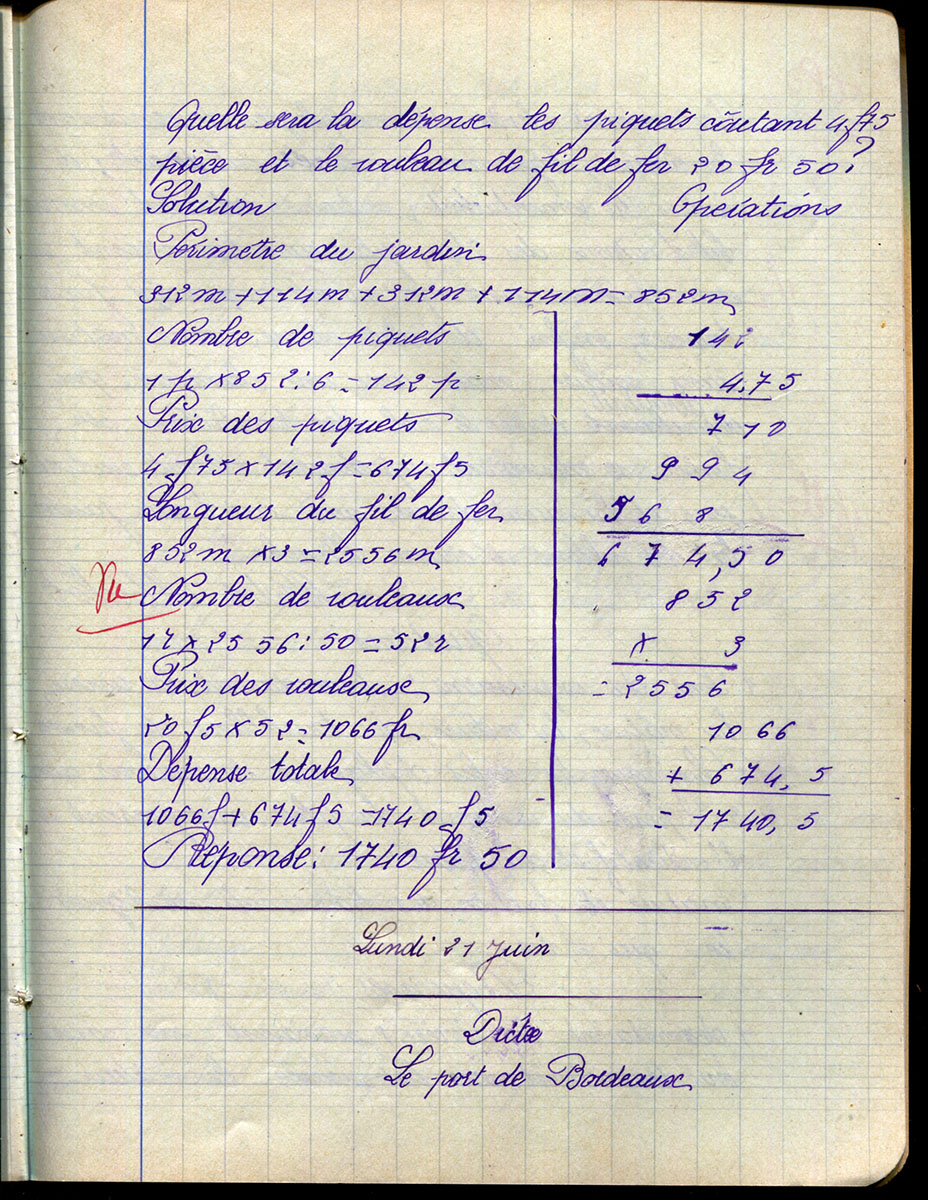 Quelle sera la dépense les piquets coûtant 4f75
pièce et le rouleau de fil de fer 20 fr 50?
Solution Opérations
Périmetre du jardin
312m + 114m + 312m + 114m = 852m
Nombre de piquets
1 p × 852 : 6 = 142 p
Prix des piquets
4 f75 × 142 f = 674 f5
Longueur du fil de fer
852m × 3 = 2556m
Vu
Nombre de rouleaux
1r × 25 56 : 50 = 52r
Prix des rouleaux
20 f5 × 52 = 1066 fr
Dépense totale
1066f + 674 f5 = 1740 f5
Réponse: 1740 fr 50
142
4,75
7 10
9 9 4
5 6 8
6 7 4,50
852
× 3
= 2556
1066
+ 674,5
= 1740,5
Lundi 21 Juin
Dictée
Le port de Bordeaux